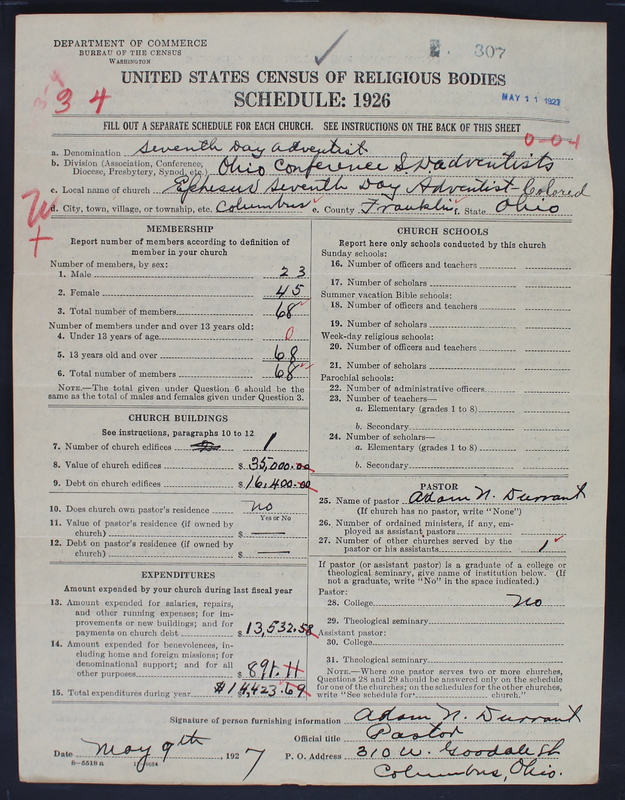 DEPARTMENT OF COMMERCE
BUREAU OF THE CENSUS
WASHINGTON
307
3 4
UNITED STATES CENSUS OF RELIGIOUS BODIES
SCHEDULE: 1926
MAY 11 1927
FILL OUT A SEPARATE SCHEDULE FOR EACH CHURCH. SEE INSTRUCTIONS ON THE BACK OF THIS SHEET
0-0-1
a. Denomination Seventh Day Adventist
b. Division (Association, Conference, Diocese, Presbytery, Synod, etc.) Ohio Conference S D adventists
c. Local name of church Ephesus Seventh Day Adventist Colored
d. City, town, village, or township, etc. Columbus e. County Franklin f. State Ohio
MEMBERSHIP
Report number of members according to definition of
member in your church
Number of members, by sex:
1. Male 23
2. Female 45
3. Total number of members 68
Number of members under and over 13 years old:
4. Under 13 years of age 0
5. 13 years old and over 68
6. Total number of members 68
NOTE.—The total given under Question 6 should be the
same as the total of males and females given under Question 3.
CHURCH BUILDINGS
See instructions, paragraphs 10 to 12
7. Number of church edifices 1
8. Value of church edifices $ 35,000.00
9. Debt on church edifices $ 16,400.00
10. Does church own pastor's residence no
Yes or No
11. Value of pastor's residence (if owned by
church) $ —
12. Debt on pastor's residence (if owned by
church) $ —
EXPENDITURES
Amount expended by your church during last fiscal year
13. Amount expended for salaries, repairs,
and other running expenses; for im-
provements or new buildings; and for
payments on church debt $ 13,532.58
14. Amount expended for benevolences, in-
cluding home and foreign missions; for
denominational support; and for all
other purposes $ 891.11
15. Total expenditures during year $14,423.69
CHURCH SCHOOLS
Report here only schools conducted by this church
Sunday schools:
16. Number of officers and teachers
17. Number of scholars
Summer vacation Bible schools:
18. Number of officers and teachers
19. Number of scholars
Week-day religious schools:
20. Number of officers and teachers
21. Number of scholars
Parochial schools:
22. Number of administrative officers
23. Number of teachers—
a. Elementary (grades 1 to 8)
b. Secondary
24. Number of scholars—
a. Elementary (grades 1 to 8)
b. Secondary
PASTOR
25. Name of pastor Adam N. Durrant
(If church has no pastor, write "None")
26. Number of ordained ministers, if any, em-
ployed as assistant pastors
27. Number of other churches served by the
pastor or his assistants 1
If pastor (or assistant pastor) is a graduate of a college or
theological seminary, give name of institution below. (If
not a graduate, write "No" in the space indicated.)
Pastor:
28. College no
29. Theological seminary
Assistant pastor:
30. College
31. Theological seminary
NOTE.—Where one pastor serves two or more churches,
Questions 28 and 29 should be answered only on the schedule
for one of the churches; on the schedules for the other churches,
write "See schedule for church."
Signature of person furnishing information Adam N. Durrant
Official title Pastor
Date May 9th, 1927 P. O. Address 310 W. Goodale St
Columbus, Ohio.
8-5518 a